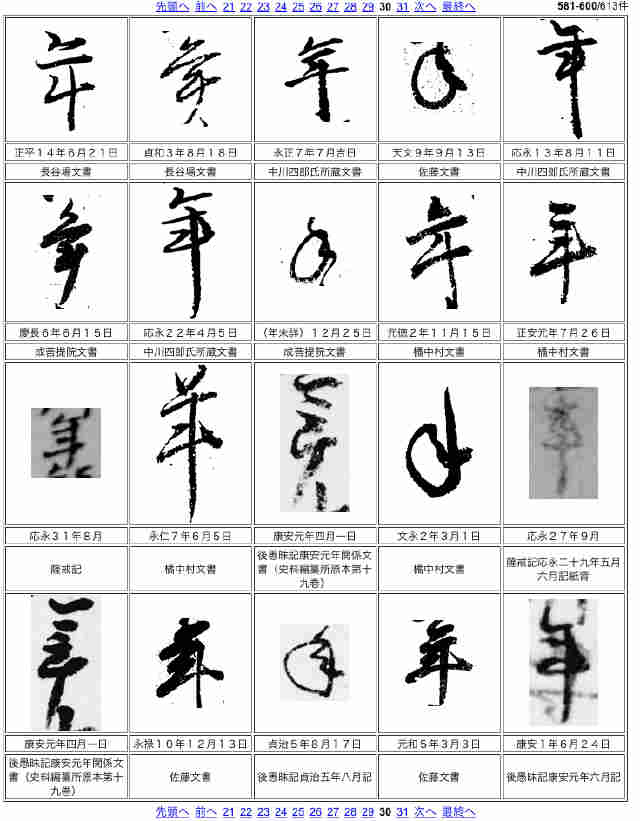 先頭へ 前へ 21 22 23 24 25 26 27 28 29 30 31 次へ 最終へ 581-600/613件
年 年 年 年 年
正平14年6月21日 貞和3年8月18日 永正7年7月吉日 天文9年9月13日 応永13年8月11日
長谷場文書 長谷場文書 中川四郎氏所蔵文書 佐藤文書 中川四郎氏所蔵文書
年 年 年 年 年
慶長6年6月15日 応永22年4月5日 (年未詳)12月25日 元徳2年11月15日 正安元年7月26日
成菩提院文書 中川四郎氏所蔵文書 成菩提院文書 橘中村文書 橘中村文書
年 年 年 年 年
応永31年8月 永仁7年6月5日 康安元年四月一日 文永2年3月1日 応永27年9月
薩戒記 橘中村文書 後愚昧記康安元年関係文書(史料編纂所原本第十九巻) 橘中村文書 薩戒記応永二十九年五月六月記紙背
年 年 年 年 年
康安元年四月一日 永禄10年12月13日 貞治5年8月17日 元和5年3月3日 康安1年6月24日
後愚昧記康安元年関係文書(史料編纂所原本第十九巻) 佐藤文書 後愚昧記貞治五年八月記 佐藤文書 後愚昧記康安元年六月記
先頭へ 前へ 21 22 23 24 25 26 27 28 29 30 31 次へ 最終へ